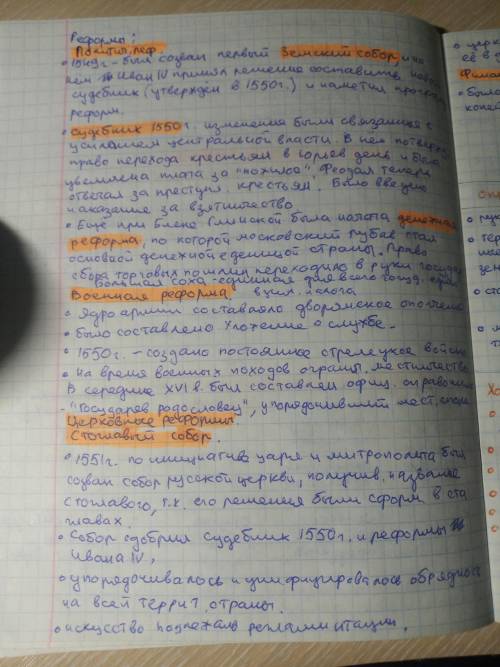 Реформы:
Политич. реф.
• 1549г. - был созван первый Земский собор, и на
нём Иван IV принял решение составить новый
судебник (утвержден в 1550г.) и наметил програ
реформ.
• Судебник 1550г. изменения были связанные с
усилением центральной власти. В нём потвержд
право перехода крестьян в Юрьев день и была
увеличена плата за "пожилое". Феодал теперь
отвечал за преступл. крестьян. Было введено
наказание за взяточество.
• Еще при Елене Глинской была начата денежная
реформа, по которой московский рубль стал
основой денежной единицей страны. Право
сбора торговых пошлин переходило в руки госуда
Большая соха - единица для всего госуд. един
Военная реформа. взим. налога
• Ядро армии составляло дворянское ополчение
• было составлено Уложение о службе.
• 1550г. - создано постоянное стрелецкое войско
• на время военных походов огранич. местничество
В середине XVI в. был составлен офиц. справочник
- "Государев родословец", упорядочивший мест. споры
Церковные реформы.
Стоглавый собор.
• 1551г. по инициативе царя и митрополита был
созван собор русской церкви, получив. название
стоглавого, т.к. его решения были сформ. в ста
главах.
• Собор одобрил судебник 1550г. и реформы
Ивана IV,
• упорядочивалось и унифицировалось обрядность
на всей террит. страны.
• искусство подлежало регламентации.
• церк
её в
Финан
• было
копей
• ру
• тер
зе
• ст
• н
та
Хо